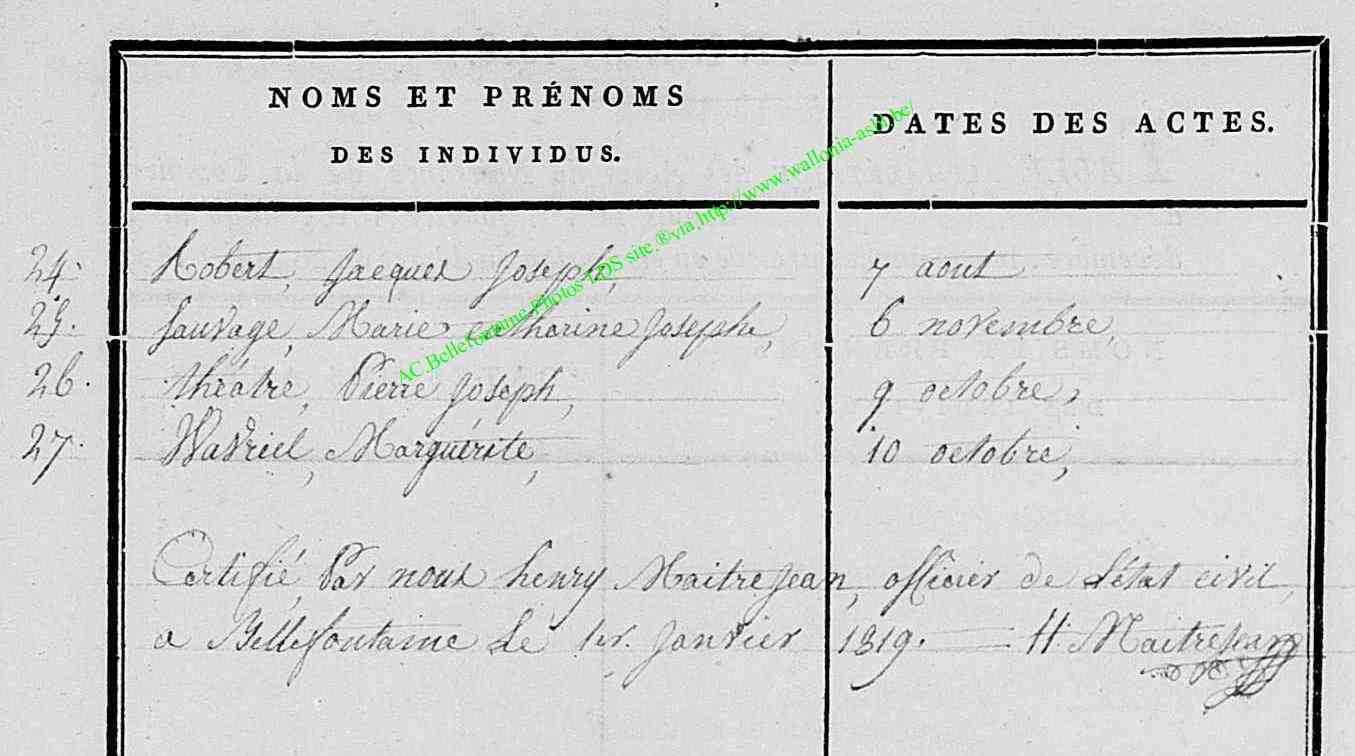 NOMS ET PRÉNOMS
DES INDIVIDUS.
DATES DES ACTES.
24. Robert, Jacques Joseph, 7 aout
25. Sauvage, Marie catharine Josephe, 6 novembre
26. théatre, Pierre Joseph, 9 octobre,
27. Wavriel, Marguérite, 10 octobre,
Certifié, Par nous henry Maitrejean, officier de L'état civil,
a Bellefontaine Le 1er. Janvier 1819. H. Maitrejean
AC Bellefontaine Photos LDS site ®via http://www.wallonia-asbl.be/